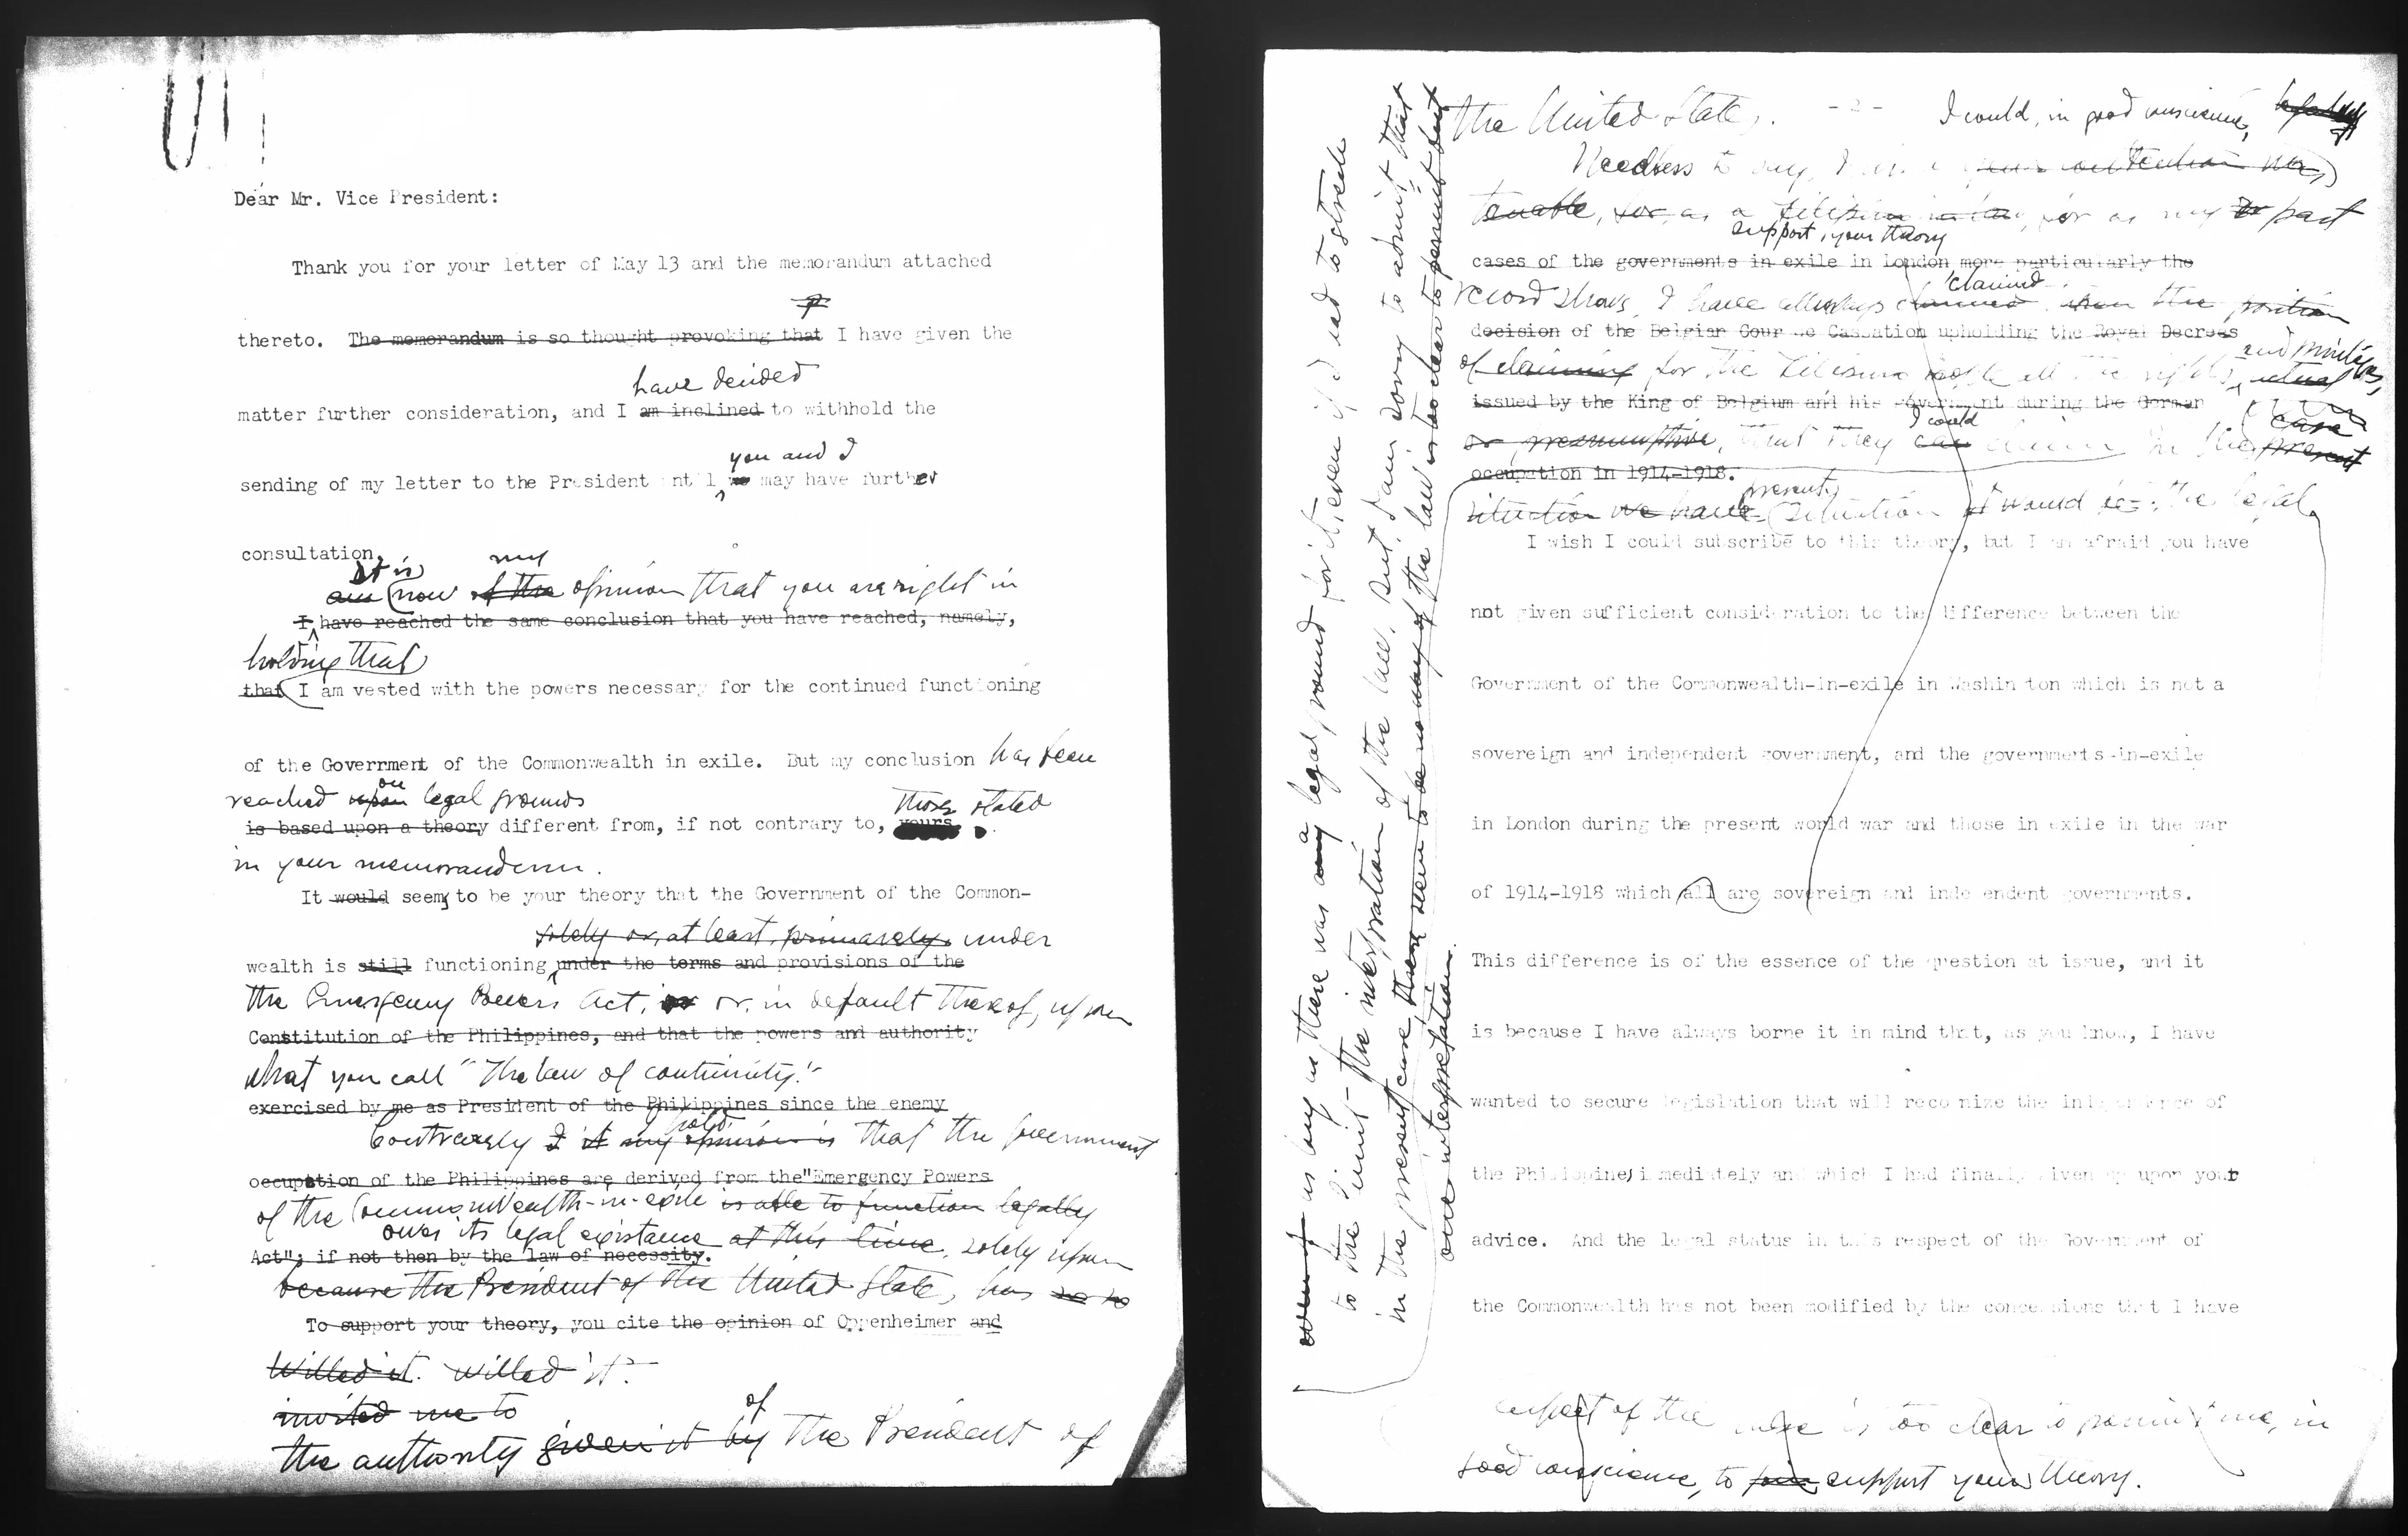 Dear Mr. Vice President:
Thank you for your letter of May 13 and the memorandum attached
thereto. The memorandum is so thought provoking that I have given the
have decided
matter further consideration, and I am inclined to withhold the
you and I
sending of my letter to the President until we may have further
consultation.
It is my
am now of the opinion that you are right in
I have reached the same conclusion that you have reached, namely,
holding that
that I am vested with the powers necessary for the continued functioning
of the Government of the Commonwealth in exile. But my conclusion has been
on
reached upon legal grounds those stated
is based upon a theory different from, if not contrary to, yours.
in your memorandum.
It would seems to be your theory that the Government of the Common-
solely or, at least, primarily, under
wealth is still functioning under the terms and provisions of the
the Emergency Powers Act, or, in default thereof, upon
Constitution of the Philippines, and that the powers and authority
what you call "the law of continuity."
exercised by me as President of the Philippines since the enemy
hold
Contrarily I it my opinion is that the Government
occupation of the Philippines are derived from the "Emergency Powers
of the Commonwealth-in-exile is able to function legally
owes its legal existence at this time, solely upon
Act"; if not then by the law of necessity.
because the President of the United States has so
To support your theory, you cite the opinion of Oppenheimer and
willed it. willed it.
invited me to
of
the authority given it by the President of
the United States. -2- I could, in good conscience,
Needless to say, your contention was
tenable, for, as a Filipino for as my past
support, your theory
cases of the governments in exile in London more particularly the
claimed
record shows, I have always the position
decision of the Belgian Cour de Cassation upholding the Royal Decrees
and privileges,
of claiming for the Filipino people all the rights, actual
issued by the King of Belgium and his government during the German
I could case
or presumptive, that they can claim in the present
occupation in 1914-1918.
present
situation we have situation it would be the legal
I wish I could subscribe to this theory, but I am afraid you have
not given sufficient consideration to the difference between the
Government of the Commonwealth-in-exile in Washington which is not a
sovereign and independent government, and the governments-in-exile
in London during the present world war and those in exile in the war
of 1914-1918 which all are sovereign and independent governments.
This difference is of the essence of the question at issue, and it
is because I have always borne it in mind that, as you know, I have
wanted to secure legislation that will recognize the independence of
the Philippines immediately and which I had finally given up upon your
advice. And the legal status in this respect of the Government of
the Commonwealth has not been modified by the concessions that I have
aspect of the case is too clear to permit me, in
good conscience, to join support your theory.
even if as long as there was any a legal ground for it, even if I had to stretch
to the limit - the interpretation of the law. But, I am sorry to admit that
in the present case, there seem to be no way of the law is too clear to permit but
one interpretation.